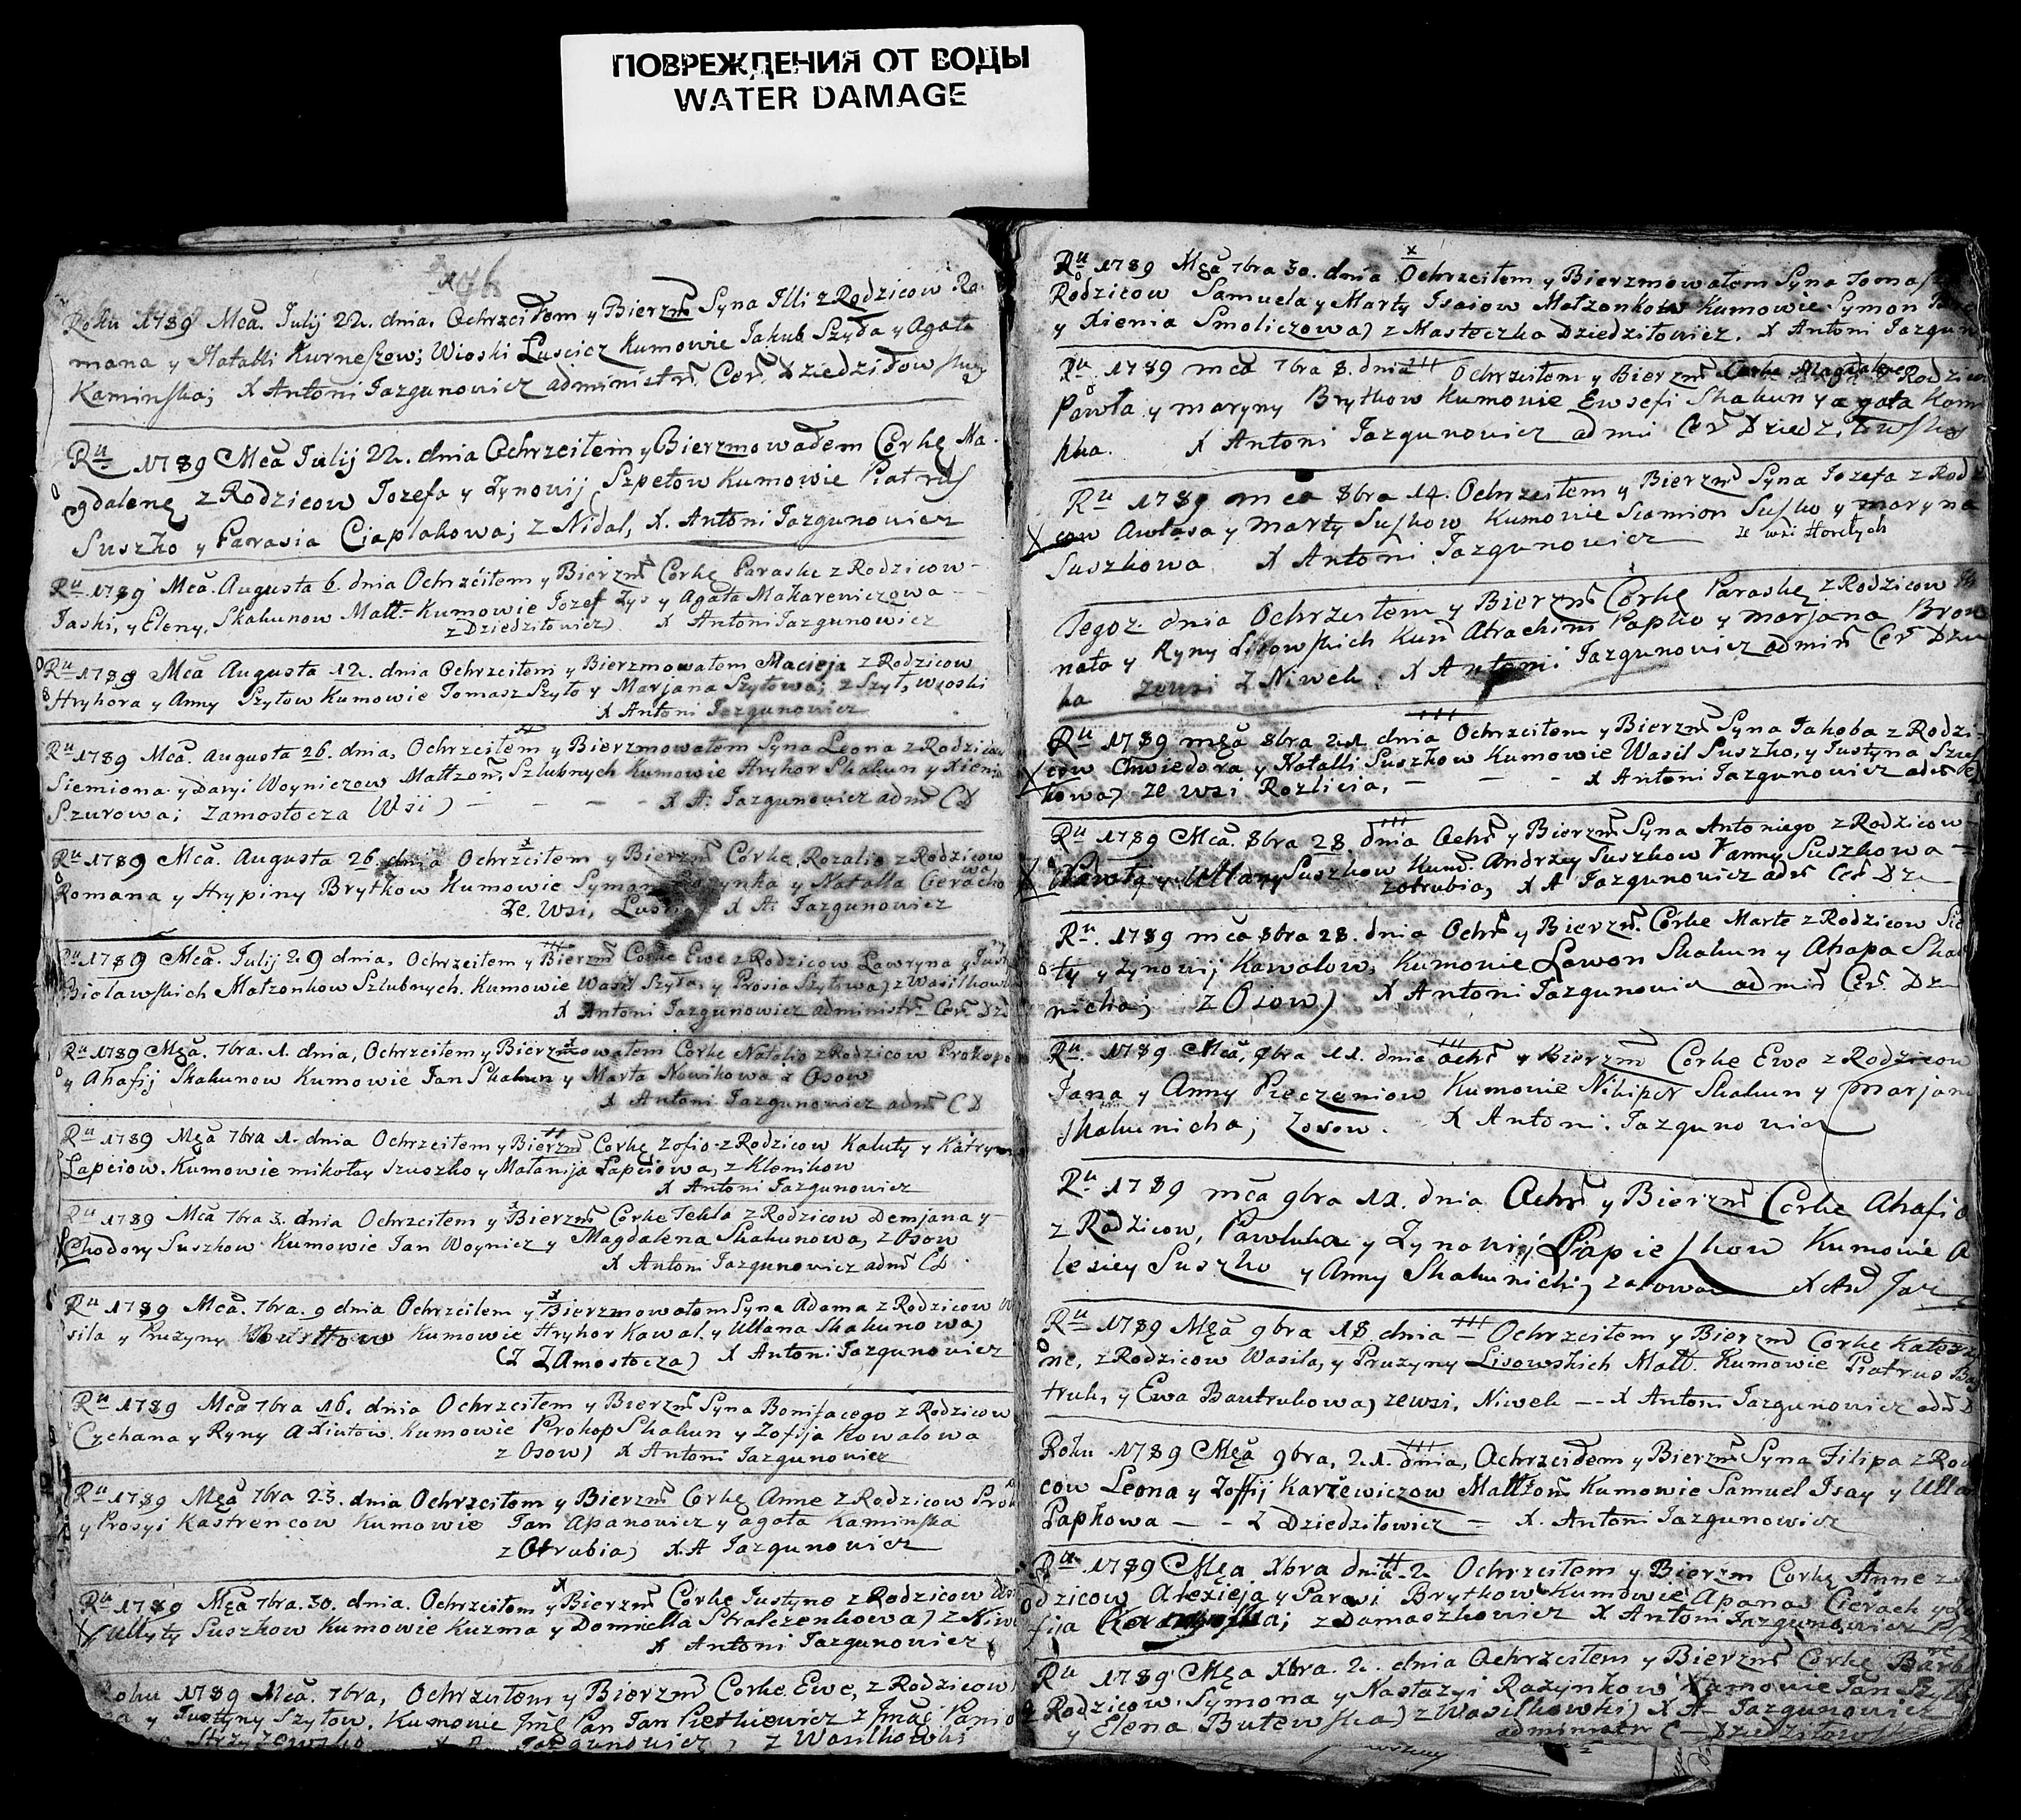 ПОВРЕЖДЕНИЯ ОТ ВОДЫ
WATER DAMAGE
Roku 1789 Mca. Julij 22. dnia. Ochrzciłem y Bierzm Syna Illi z Rodzicow Ro-
mana y Natalli Kurneszow; Wioski Luscicz Kumowie Jakub Szyła y Agata
Kaminska; X Antoni Jazgunowicz administr. Cer. Dziedziłow
Ru 1789 Mca Julij 22. dnia Ochrzciłem y Bierzmowałem Corkę Ma-
gdalenę z Rodzicow Jozefa y Zynowij Szpetow Kumowie Piatrus
Suszko y Parasia Ciaplakowa; z Nidal, X. Antoni Jazgunowicz
Ru 1789 Mca. Augusta 6. dnia Ochrzciłem y Bierzm Corkę Paraskę z Rodzicow
Jaski, y Eleny, Skakunow Małł= Kumowie Jozef Zys y Agata Makarewiczowa
z Dziedziłowicz) X Antoni Jazgunowicz
Ru 1789 Mca Augusta 12. dnia Ochrzciłem y Bierzmowałem Macieja z Rodzicow
Hryhora y Anny Szyłow Kumowie Tomasz Szyło y Marjana Szyłowa; z Szył, Wioski
X Antoni Jazgunowicz
Ru 1789 Mca. augusta 26. dnia, Ochrzciłem y Bierzmowałem Syna Leona z Rodzicow
Siemiona y Daryi Woyniczow Małłzon, Szlubnych Kumowie Hryhor Skakun y Xienia
Szurowa; Zamostocza Wsi) - - - - X A: Jazgunowicz adm C D
Ru 1789 Mca. Augusta 26. dnia Ochrzciłem y Bierzm Corkę Rozalię z Rodzicow
Romana y Hrypiny Brytkow Kumowie Symon y Natalla Cieracho
wa
Ze. Wsi, X A: Jazgunowicz
Ru 1789 Mca. Julij 29 dnia, Ochrzciłem y Bierzm Corkę Ewę z Rodzicow Ławryna y
Bieławskich Małzonkow Szlubnych. Kumowie Wasil Szyła, y Prosia Szyłowa) z Wasilkow
X Antoni Jazgunowicz administr Cer Dz
Ru 1789 Męa. 7bra. 1. dnia, Ochrzciłem y Bierzmowałem Corkę Natalię z Rodzicow Prokopa
y Ahafij Skakunow Kumowie Jan Skakun y Marta Nowikowa z Osow
X Antoni Jazgunowicz adm C D
Ru 1789 Męa 7bra 1. dnia Ochrzciłem y Bierzm Corkę, Zofię z Rodzicow Kaluty y Katryny
Łapciow. Kumowie mikołay szuszko y Małanija Łapciowa, z Klenikow
X Antoni Jazgunowicz
Ru 1789 Mca 7bra 3. dnia Ochrzciłem y Bierzm Corkę Teklą z Rodzicow Demjana y
Chodory Suszkow Kumowie Jan Woynicz y Magdalena Skakunowa, z Osow
X Antoni Jazgunowicz adm CD
Ru 1789 Mca. 7bra. 9 dnia Ochrzciłem y Bierzmowałem Syna Adama z Rodzicow Wa
sila y Pruzyny Kumowie Hryhor Kawal. y Ullana Skakunowa)
(z ZAmostocza) X Antoni Jazgunowicz
Ru 1789 Mca 7bra 16. dnia Ochrzciłem y Bierzm Syna Bonifacego z Rodzicow
Cychana y Ryny Axiutow. Kumowie Prokop Skakun y Zofija Kowalowa
z Osow) X Antoni Jazgunowicz
Ru 1789 Męa 7bra 23. dnia Ochrzciłem y Bierzm Corkę Annę z Rodzicow Prok
y Prosyi Kastrencow Kumowie Jan Apanowicz y agata Kaminska
z Otrubia) X. A Jazgunowicz
Ru 1789 Męa 7bra. 30. dnia. Ochrzciłem y Bierzm Corkę Justynę z Rodzicow
y Ullyty Suszkow Kumowie Kuzma y Domicella Stralczenkowa) z Niwe
X Antoni Jazgunowicz
Roku 1789 Mca. 7bra, Ochrzciłem y Bierzm Corkę Ewę, z Rodzicow
y Justyny Szyłow. Kumowie Jan Pietkiewicz z
X A Jazgunowicz, z Wasilkowki
Ru 1789 Męa 7bra 30. dnia Ochrzciłem y Bierzmowałem Syna Tomasza
Rodzicow Samuela y Marty Isaiow Małzonkow Kumowie Symon
y Xienia Smoliczowa) z Mastoczka Dziedziłowicz. X Antoni Jazgun
Ru 1789 mca 7bra 8. dnia Ochrzciłem y Bierzm Corkę Magdalenę z Rodzicow
Pawła y maryny Brytkow Kumowie Ewsefi Skakun y agata Kam
ska. X Antoni Jazgunowicz admi Cer Dziedziłowskiey
Ru 1789 mca 8bra 14. Ochrzciłem y Bierzm Syna Jozefa z Rodzi
cow Awłasa y Marty Suszkow Kumowie Siamion Suszko y maryna
Suszkowa X Antoni Jazgunowicz Ze wsi Horełych
Tegoz dnia Ochrzciłem y Bierzm Corkę Paraskę z Rodzicow
nata y Ryny Lisowskich Kum Atrachim Papko y marjana Brow
ka zewsi Z Niwek. X Antoni Jazgunowicz admin Cer Dzie
Ru 1789 męa 8bra 21. dnia Ochrzciłem y Bierzm Syna Jakoba z Rodzi-
cow Chwiedora y Natalli Suszkow Kumowie Wasil Suszko, y Justyna Szusz
kowa) ze wsi Rozlicia, - - - - X Antoni Jazgunowicz adm
Ru 1789 Mca. 8bra. 28. dnia Ochr y Bierzm Syna Antoniego z Rodzicow
Pawła y Ullany Suszkow Kum. Andrzey Suszkow Yanny Suszkowa
Zotrubia, X A Jazgunowicz adm Cer Dz
Ru. 1789 mca 8bra 28. dnia Ochr y Bierzm. Corkę Martę z Rodzicow
ty y Zynowij Kawalow, Kumowie Lawon Skakun y Ahapa Skak
nicha, z Osow) X Antoni Jazgunowicz admin Cer. Dz
Ru. 1789. Mca, 9bra 11. dnia Ochr y Bierzm Corkę Ewę z Rodzicow
Jana y Anny Pieczeniow Kumowie Nikiper Skakun y Marjana
Skakunicha; Zosow. X Antoni. Jazgunowicz
Ru 1789 mca 9bra 11. dnia Ochr y Bierzm Corkę Ahafię
z Rodzicow, Pawluka y Zynowij Kumowie A
lesiey Suszko y Anny Skakunichi;
Ru 1789 Męa 9bra 18. dnia Ochrzciłem y Bierzm Corkę Katerzy
nę, z Rodzicow Wasila, y Pruzyny Lisowskich Małł. Kumowie Piatrus Bau
truk, y Ewa Bautrukowa) zewsi, Niwek -- X Antoni Jazgunowicz adm D
Roku 1789 Męa 9bra, 21. dnia, Ochrzciłem y Bierzm Syna Filipa z Rodzi
cow Leona y Zoffij Karżewiczow Małłżon Kumowie Samuel Isay y Ullana
Papkowa - - z Dziedziłowicz - X. Antoni Jazgunowicz
Ru 1789 Męa Xbra dnia 2. Ochrzciłem y Bierzm Corkę Annę z
Rodzicow Alexieja y Parasi Brytkow Kumowie Apanas Cierach y Zo
fija z Damaszkowicz X Antoni Jazgunowicz
Ru 1789 Męa Xbra. 2. dnia Ochrzciłem y Bierzm Corkę Barba
z Rodzicow. Symona y Nastazyi Razynkow Kumowie Jan Szyła
y Elena Butewska) z Wasilkowki) X A- Jazgunowicz
administr C - Dziedziłows